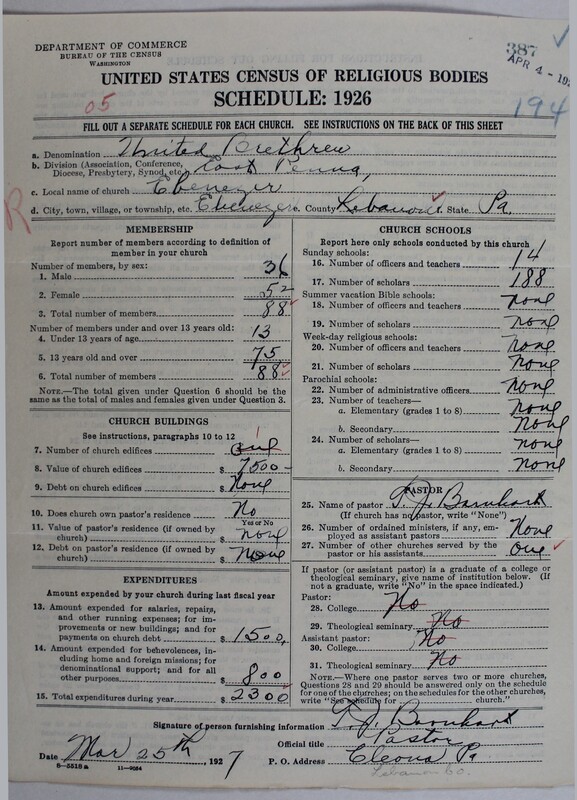 387
APR 4 - 19
DEPARTMENT OF COMMERCE
BUREAU OF THE CENSUS
WASHINGTON
UNITED STATES CENSUS OF RELIGIOUS BODIES
SCHEDULE: 1926
05
194
FILL OUT A SEPARATE SCHEDULE FOR EACH CHURCH. SEE INSTRUCTIONS ON THE BACK OF THIS SHEET
a. Denomination United Brethren
b. Division (Association, Conference, Diocese, Presbytery, Synod, etc.) East Penna,
c. Local name of church Ebenezer
R d. City, town, village, or township, etc. Ebenezer e. County Lebanon f. State Pa.
MEMBERSHIP
Report number of members according to definition of
member in your church
Number of members, by sex:
1. Male 36
2. Female 52
3. Total number of members 88
Number of members under and over 13 years old:
4. Under 13 years of age 13
5. 13 years old and over 75
6. Total number of members 88
NOTE.—The total given under Question 6 should be
same as the total of males and females given under Question 3.
CHURCH BUILDINGS
See instructions, paragraphs 10 to 12
7. Number of church edifices one 1
8. Value of church edifices $ 7500-
9. Debt on church edifices $ None
10. Does church own pastor's residence? No
Yes or No
11. Value of pastor's residence (if owned by
church) $ none
12. Debt on pastor's residence (if owned by
church) $ None
EXPENDITURES
Amount expended by your church during last fiscal year
13. Amount expended for salaries, repairs,
and other running expenses; for im-
provements or new buildings; and for
payments on church debt $ 1500,
14. Amount expended for benevolences, in-
cluding home and foreign missions; for
denominational support; and for all
other purposes $ 800
15. Total expenditures during year $ 2300
CHURCH SCHOOLS
Report here only schools conducted by this church
Sunday schools:
16. Number of officers and teachers 14
17. Number of scholars 188
Summer vacation Bible schools:
18. Number of officers and teachers none
19. Number of scholars none
Week-day religious schools:
20. Number of officers and teachers none
21. Number of scholars none
Parochial schools:
22. Number of administrative officers none
23. Number of teachers—
a. Elementary (grades 1 to 8) none
b. Secondary none
24. Number of scholars—
a. Elementary (grades 1 to 8) none
b. Secondary none
PASTOR
25. Name of pastor J. Barnhart
(If church has no pastor, write "None")
26. Number of ordained ministers, if any, em-
ployed as assistant pastors None
27. Number of other churches served by the
pastor or his assistants one
If pastor (or assistant pastor) is a graduate of a college or
theological seminary, give name of institution below. (If
not a graduate, write "No" in the space indicated.)
Pastor:
28. College No
29. Theological seminary No
Assistant pastor:
30. College No
31. Theological seminary No
NOTE.—Where one pastor serves two or more churches,
Questions 28 and 29 should be answered only on the schedule
for one of the churches; on the schedules for the other churches,
write "See schedule for church."
Signature of person furnishing information J. Barnhart
Official title Pastor
Date Mar 25th, 1927 P. O. Address Cleona Pa
Lebanon Co.
8-5518a 11-9084